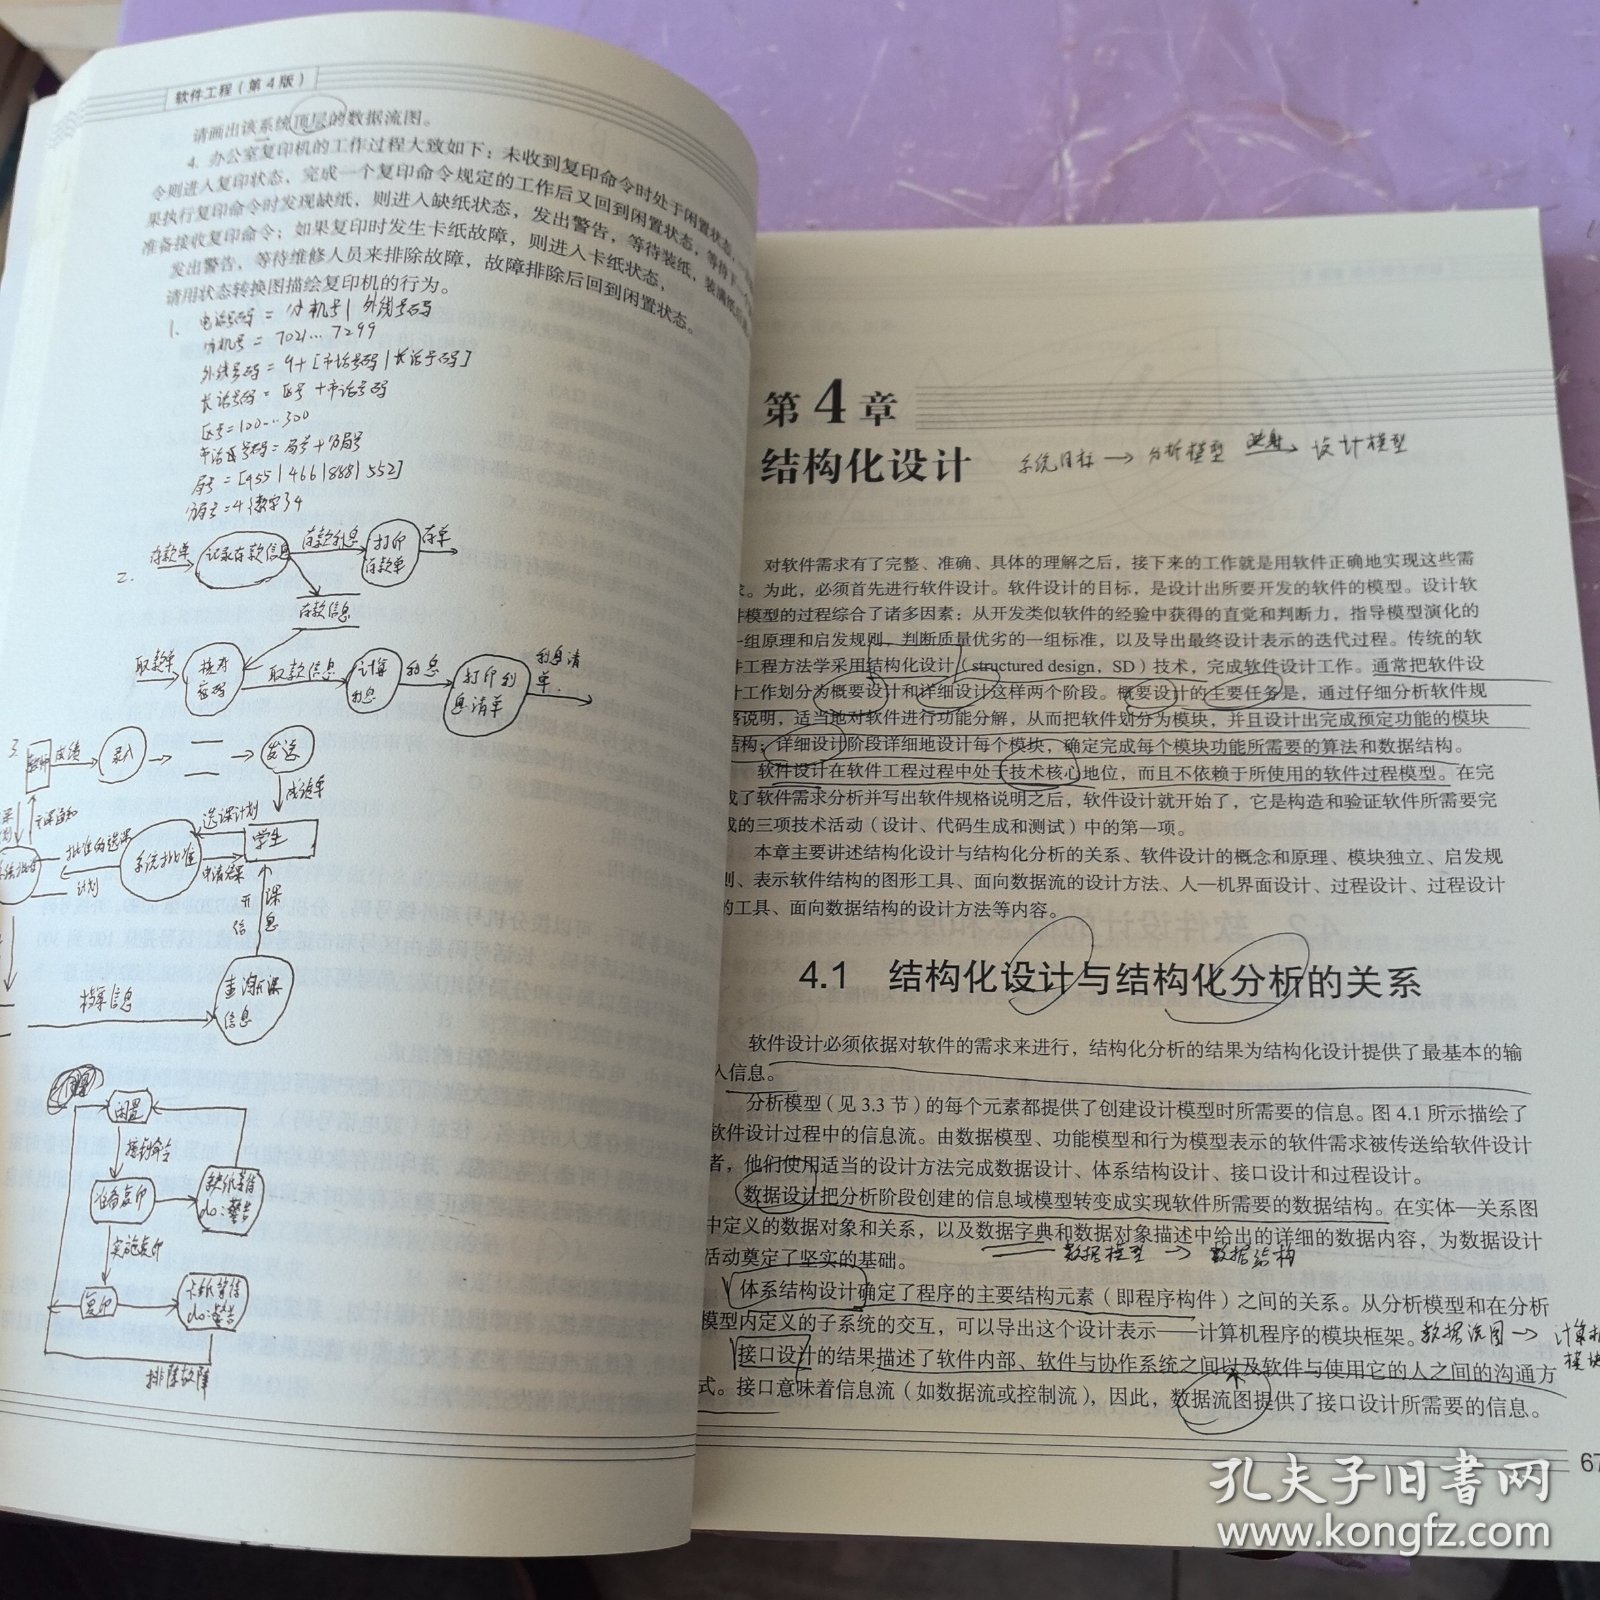 软件工程（第4版）
请画出该系统顶层的数据流图。
4. 办公室复印机的工作过程大致如下：未收到复印命令时处于闲置状态，
令则进入复印状态，完成一个复印命令规定的工作后又回到闲置状态，等待下一个
果执行复印命令时发现缺纸，则进入缺纸状态，发出警告，等待装纸，装满纸后
准备接收复印命令；如果复印时发生卡纸故障，则进入卡纸状态，
发出警告，等待维修人员来排除故障，故障排除后回到闲置状态。
请用状态转换图描绘复印机的行为。
1. 电话号码 = 分机号 | 外线号码
分机号 = 7021…7299
外线号码 = 9+[市话号码 | 长话号码]
长话号码 = 区号 + 市话号码
区号=100…300
市话号码=局号+分局号
局号 = [455 | 466 | 888 | 552]
分局号=4{数字}4
2.
存款单
记录存款信息
存款信息
打印存款单
存单
存款信息
取款单
核对
取款信息
计算利息
利息
打印利息清单
利息清单
3.
成绩
录入
发送
成绩单
选课计划
学生
批准的选课
计划
系统批准
申请选课
开课信息
档案信息
查询开课信息
闲置
接到命令
准备复印
缺纸等待
do:警告
实施复印
复印
卡纸等待
do:警告
排除故障
第4章
结构化设计
系统目标 → 分析模型 映射→ 设计模型
对软件需求有了完整、准确、具体的理解之后，接下来的工作就是用软件正确地实现这些需
。为此，必须首先进行软件设计。软件设计的目标，是设计出所要开发的软件的模型。设计软
件模型的过程综合了诸多因素：从开发类似软件的经验中获得的直觉和判断力，指导模型演化的
一组原理和启发规则，判断质量优劣的一组标准，以及导出最终设计表示的迭代过程。传统的软
件工程方法学采用结构化设计（structured design，SD）技术，完成软件设计工作。通常把软件设
计工作划分为概要设计和详细设计这样两个阶段。概要设计的主要任务是，通过仔细分析软件规
格说明，适当地对软件进行功能分解，从而把软件划分为模块，并且设计出完成预定功能的模块
结构；详细设计阶段详细地设计每个模块，确定完成每个模块功能所需要的算法和数据结构。
软件设计在软件工程过程中处于技术核心地位，而且不依赖于所使用的软件过程模型。在完
成了软件需求分析并写出软件规格说明之后，软件设计就开始了，它是构造和验证软件所需要完
成的三项技术活动（设计、代码生成和测试）中的第一项。
本章主要讲述结构化设计与结构化分析的关系、软件设计的概念和原理、模块独立、启发规
则、表示软件结构的图形工具、面向数据流的设计方法、人—机界面设计、过程设计、过程设计
的工具、面向数据结构的设计方法等内容。
4.1 结构化设计与结构化分析的关系
软件设计必须依据对软件的需求来进行，结构化分析的结果为结构化设计提供了最基本的输
入信息。
分析模型（见 3.3 节）的每个元素都提供了创建设计模型时所需要的信息。图 4.1 所示描绘了
软件设计过程中的信息流。由数据模型、功能模型和行为模型表示的软件需求被传送给软件设计
者，他们使用适当的设计方法完成数据设计、体系结构设计、接口设计和过程设计。
数据设计把分析阶段创建的信息域模型转变成实现软件所需要的数据结构。在实体—关系图
中定义的数据对象和关系，以及数据字典和数据对象描述中给出的详细的数据内容，为数据设计
活动奠定了坚实的基础。
数据模型 → 数据结构
体系结构设计确定了程序的主要结构元素（即程序构件）之间的关系。从分析模型和在分析
模型内定义的子系统的交互，可以导出这个设计表示——计算机程序的模块框架。
数据流图 → 计算机
模块
接口设计的结果描述了软件内部、软件与协作系统之间以及软件与使用它的人之间的沟通方
式。接口意味着信息流（如数据流或控制流），因此，数据流图提供了接口设计所需要的信息。
67
孔夫子旧书网
www.kongfz.com